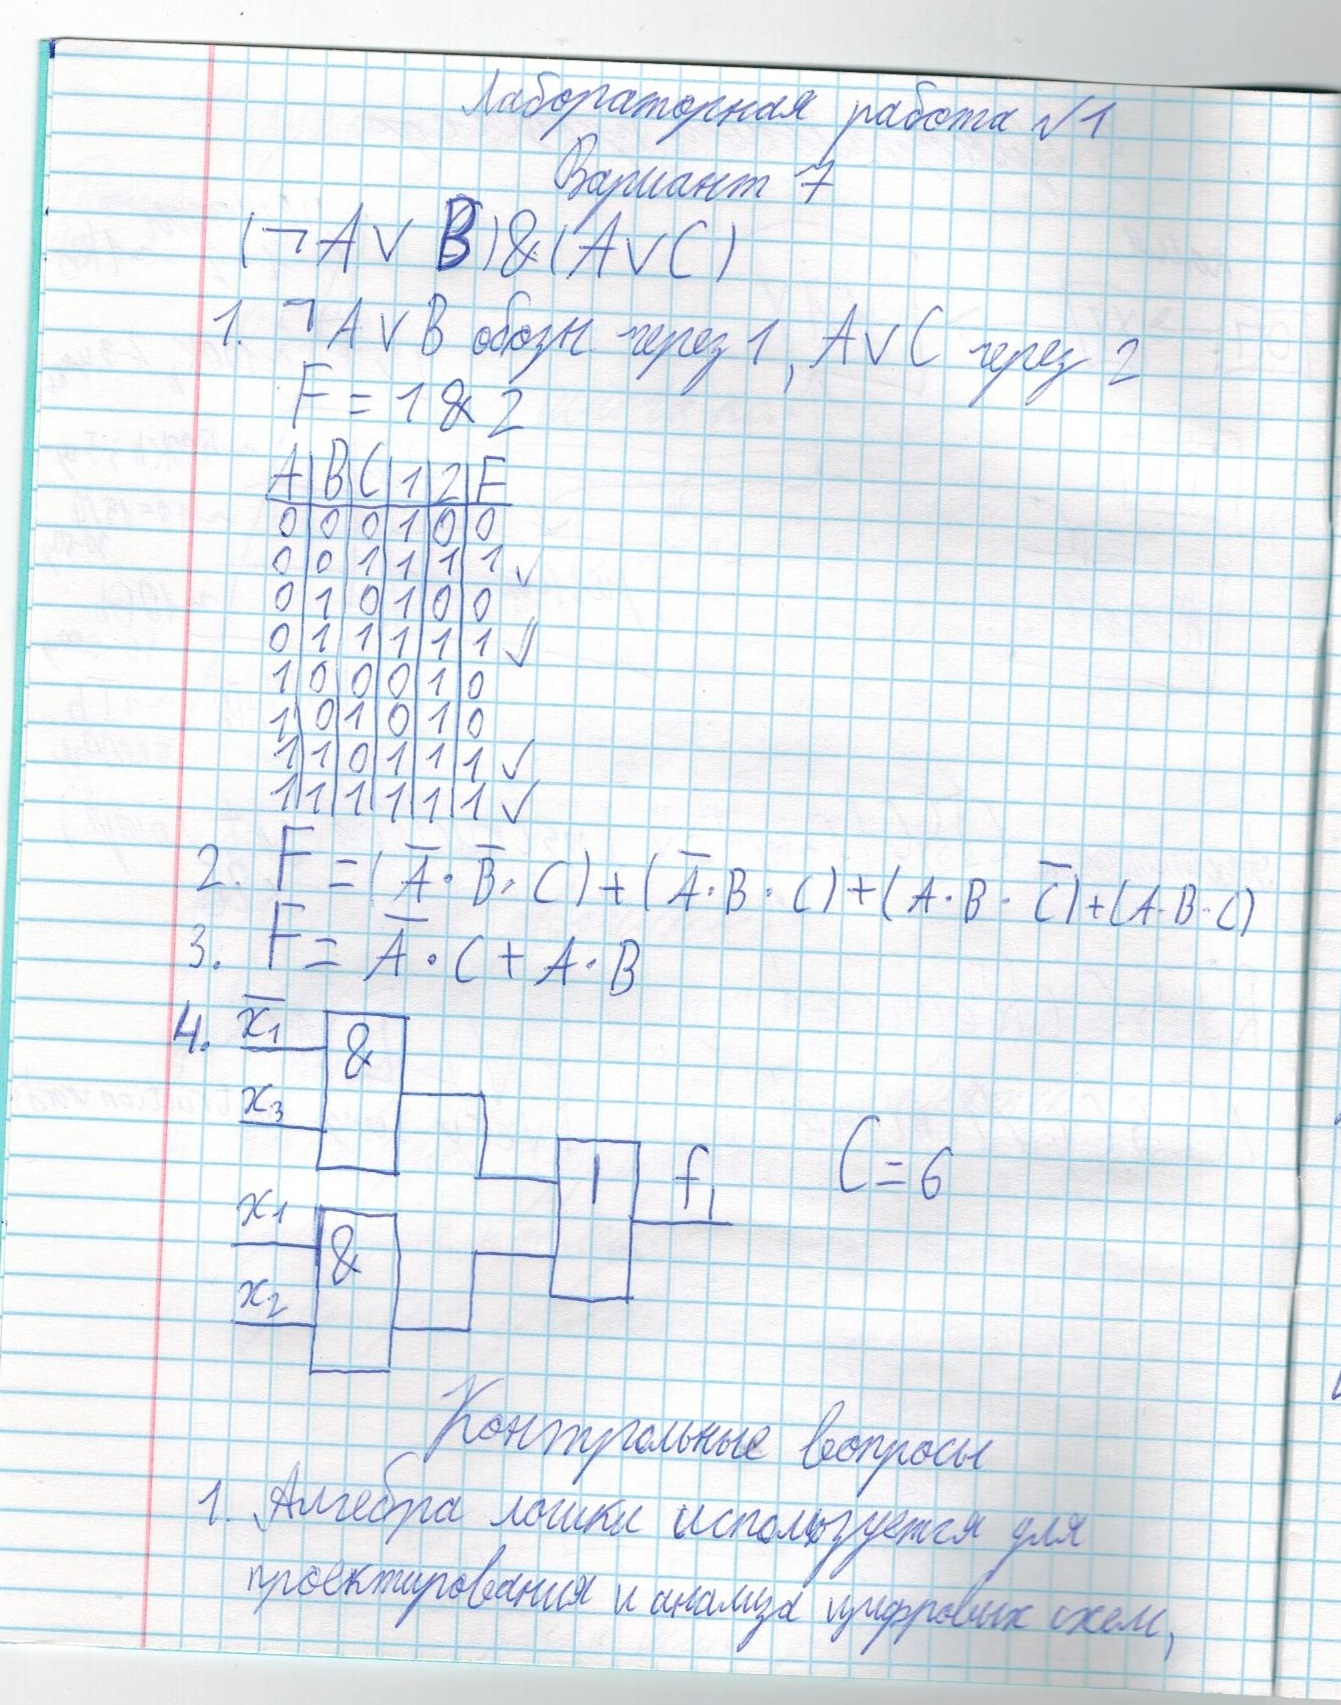 Лабораторная работа №1
Вариант 7
(¬A∨B)&(A∨C)
1. ¬A∨B обозн через 1, A∨C через 2
F = 1 & 2
A|B|C|1|2|F
0 0 0 1 0 0
0 0 1 1 1 1 ✓
0 1 0 1 0 0
0 1 1 1 1 1 ✓
1 0 0 0 1 0
1 0 1 0 1 0
1 1 0 1 1 1 ✓
1 1 1 1 1 1 ✓
2. F = (A̅·B̅·C)+(A̅·B·C)+(A·B·C̅)+(A·B·C)
3. F = A̅·C+A·B
4. x̅₁
&
x₃
1
f₁
C=6
x₁
&
x₂
Контрольные вопросы
1. Алгебра логики используется для
проектирования и анализа цифровых схем,